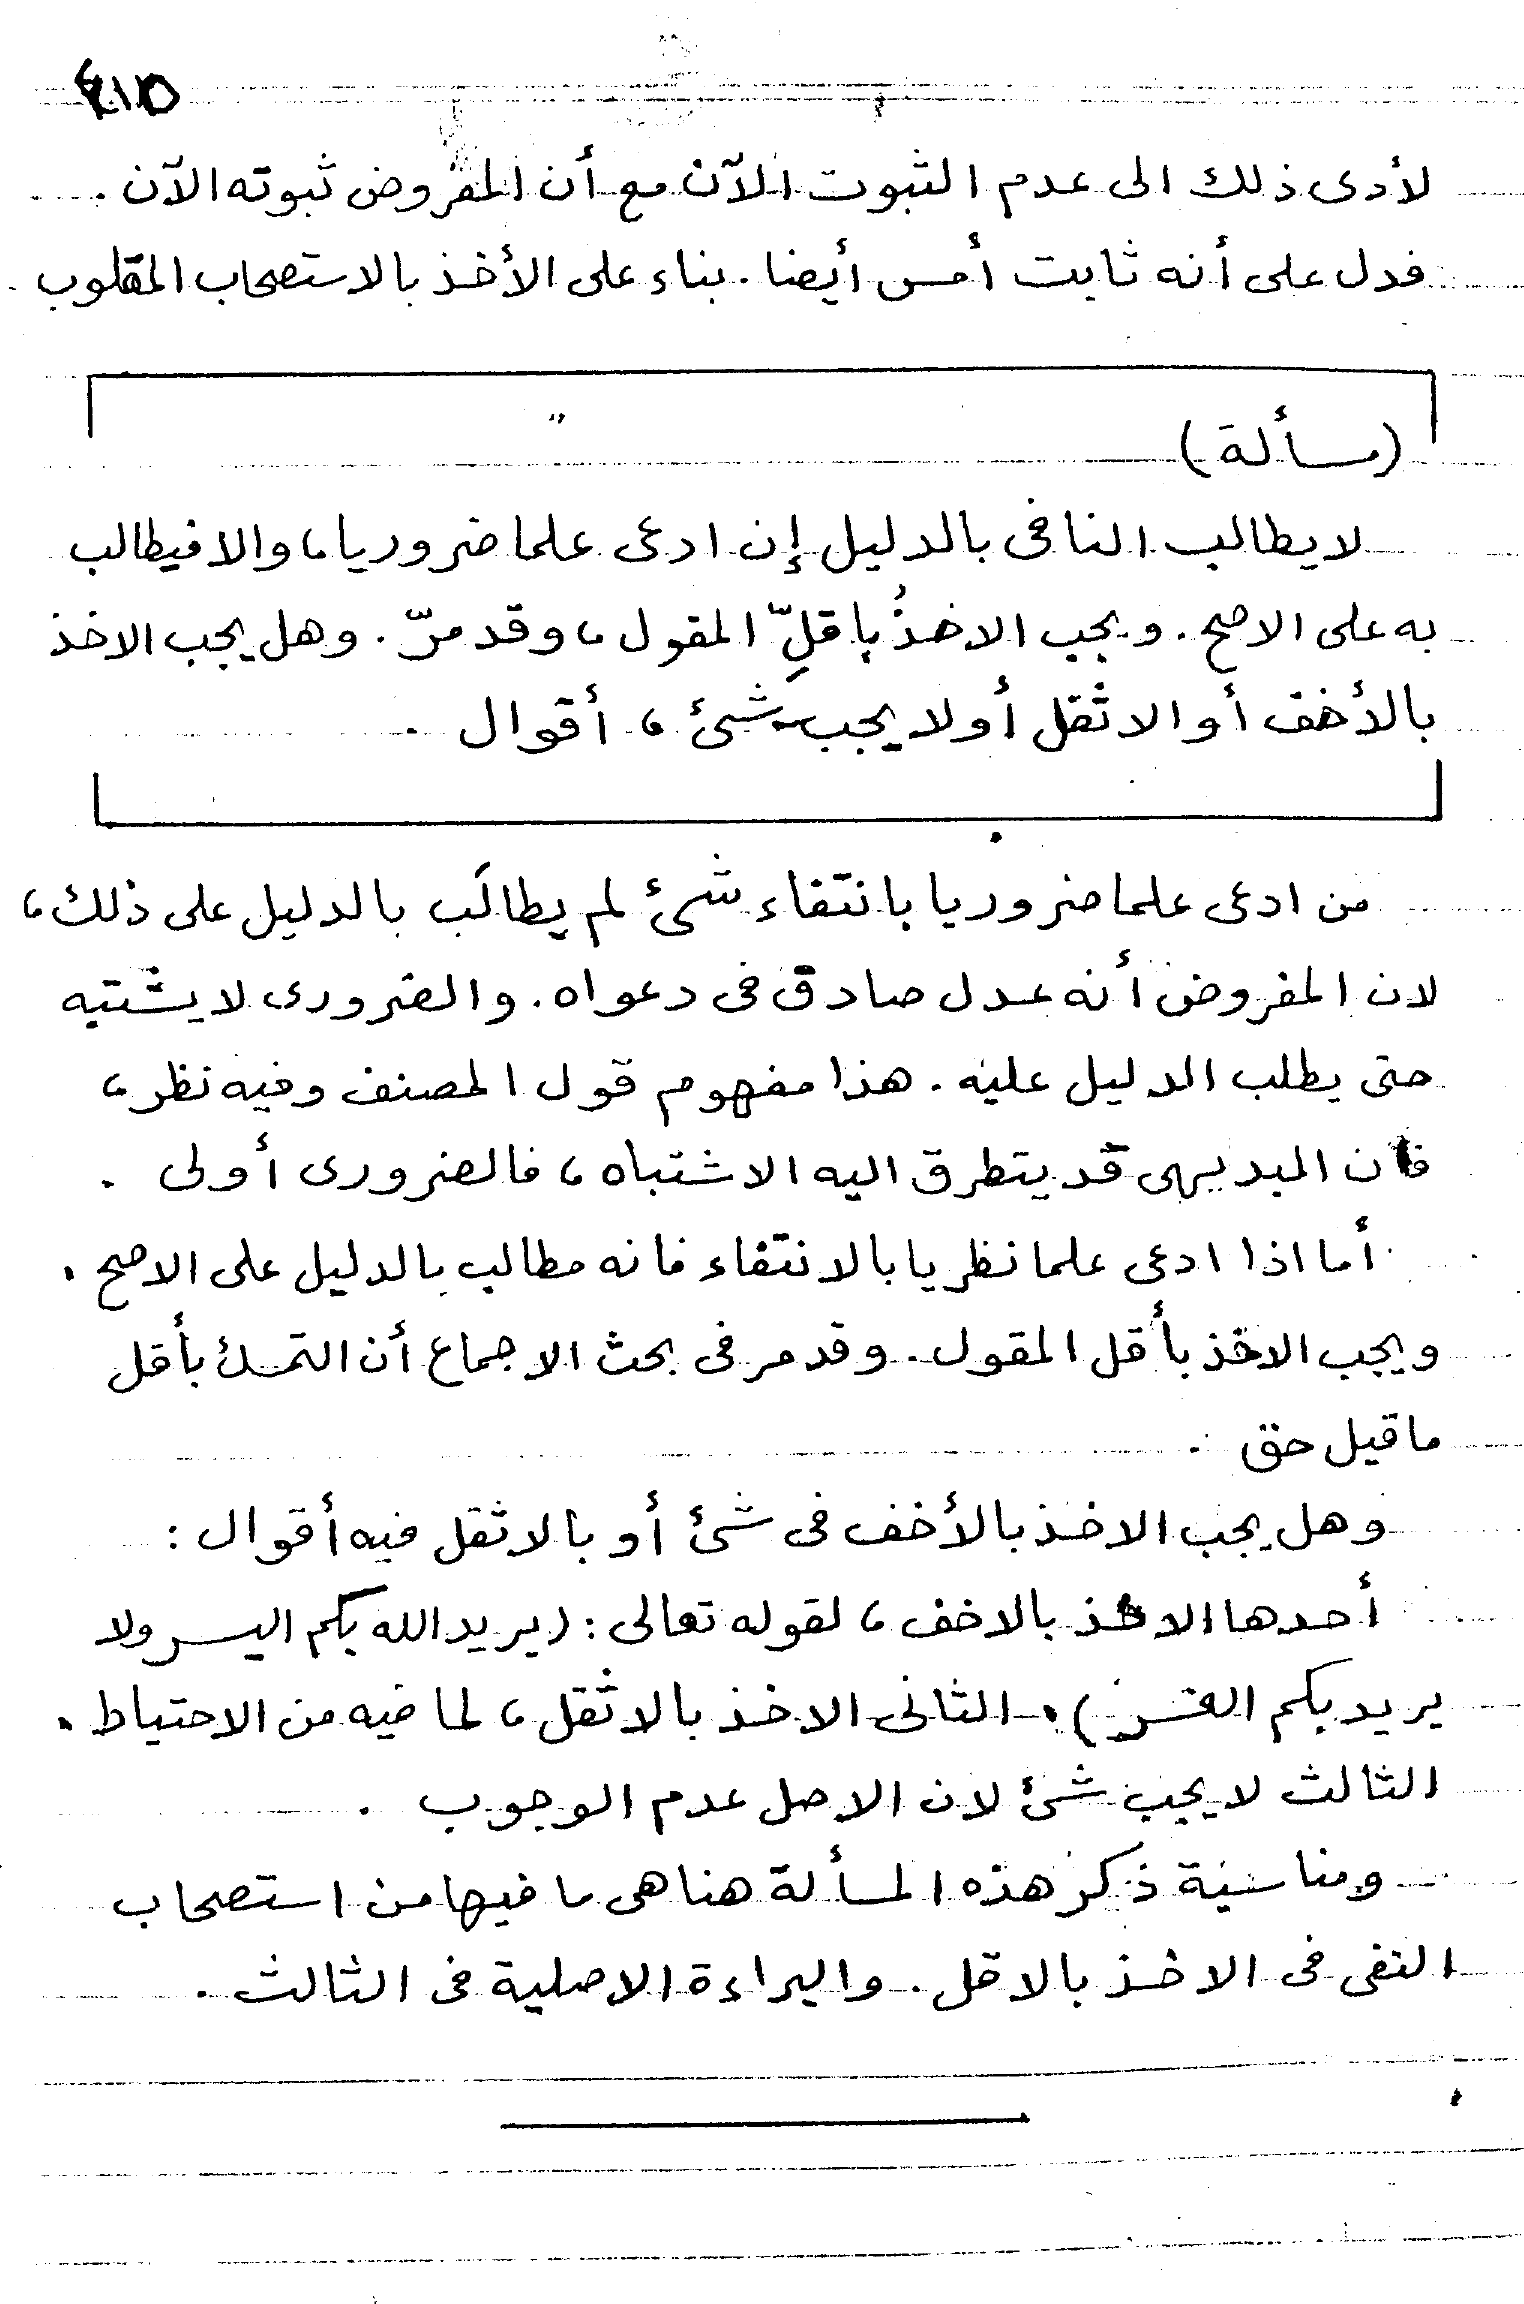 ٤١٥
لأدى ذلك الى عدم الثبوت الآن مع أن المفروض ثبوته الآن .
فدل على أنه ثابت أمس أيضا . بناء على الأخذ بالاستصحاب المقلوب .
(مسألة)
لا يطالب النافى بالدليل إن ادعى علما ضروريا، والا فيطالب
به على الاصح . ويجب الاخذُ باقلِّ المقول، وقد مرّ . وهل يجب الاخذ
بالأخف أو الاثقل أو لا يجب شئ ، أقوال .
من ادعى علما ضروريا بانتفاء شئ لم يطالَب بالدليل على ذلك ،
لان المفروض أنه عدل صادق فى دعواه . والضرورى لا يشتبه
حتى يطلب الدليل عليه . هذا مفهوم قول المصنف وفيه نظر ،
فان البديهى قد يتطرق اليه الاشتباه ، فالضرورى أولى .
أما اذا ادعى علما نظريا بالانتفاء فانه مطالب بالدليل على الاصح .
ويجب الاخذ بأقل المقول . وقد مر فى بحث الاجماع أن التمسك بأقل
ما قيل حق .
وهل يجب الاخذ بالأخف فى شئ أو بالاثقل فيه أقوال :
أحدها الاخذ بالاخف ، لقوله تعالى : (يريد الله بكم اليسر ولا
يريد بكم العسر) . الثانى الاخذ بالاثقل ، لما فيه من الاحتياط .
الثالث لا يجب شئ لان الاصل عدم الوجوب .
ومناسبة ذكر هذه المسألة هنا هى ما فيها من استصحاب
النفى فى الاخذ بالاقل . والبراءة الاصلية فى الثالث .